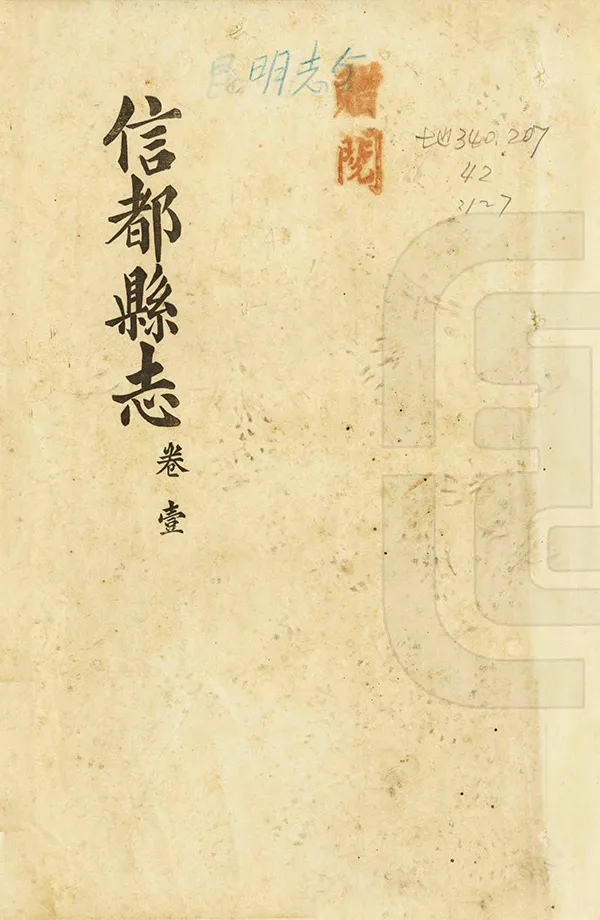 信都縣志
卷壹
明志
閱
地340.207
42
2127